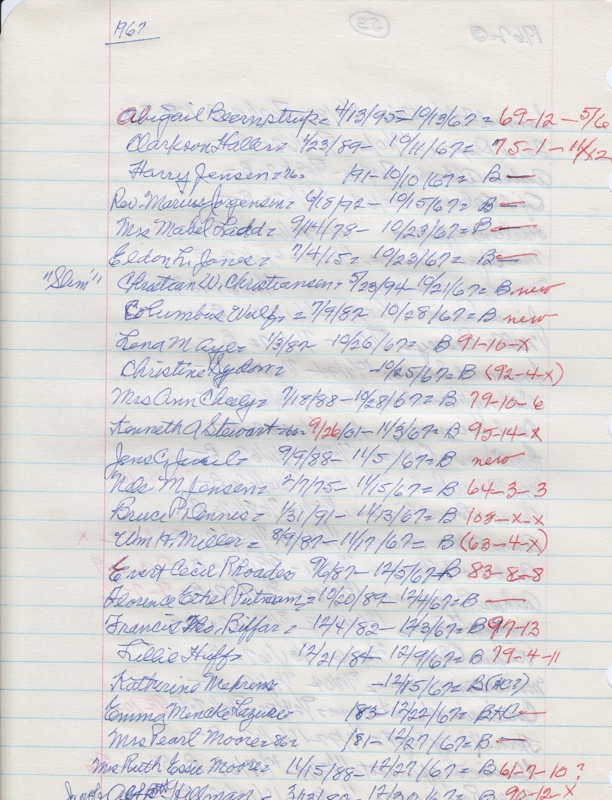 1967
Abigail Beernstrup = 4/13/95 - 10/13/67 = 69-12-5/6
Clarkson Haller = 1/23/89 - 10/11/67 = 75-1-
Harry Jensen = 76 - /91 - 10/10/67 = B —
Rev. Marius Jorgensen = 6/18/92 - 10/15/67 = B —
Mrs Mabel Ladd = 9/14/78 - 10/23/67 = B —
Eldon L. Jones = 7/4/15 = 10/23/67 = B —
"Slim" Christian W. Christiansen = 5/23/94 - 10/21/67 = B new
Columbus Wulf = 7/9/82 - 10/28/67 = B new
Lena M Aye = 1/3/82 - 10/26/67 = B 91-10-X
Christine = - 10/25/67 = B (92-4-X)
Mrs Ann Cheely = 7/18/88 - 10/28/67 = B 79-10-6
Kenneth A Stewart = 9/26/01 - 11/3/67 = B 95-14-X
Jens C. Juel = 9/9/88 - 11/5/67 = B new
Nels M Jensen = 2/7/75 - 11/15/67 = B 64-3-3
Bruce P. Dennis = 1/31/91 - 11/13/67 = B 103-X-X
Wm H. Miller = 8/9/87 - 11/17/67 = B (63-4-X)
Everet Cecil Rhoades 9/6/87 - 12/5/67 = B 83-8-8
Florence Ethel Putnam = 10/20/89 - 12/4/67 = B —
Francis Theo. Biffar = 12/4/82 - 12/3/67 = B 97-13
Lillie Huff 12/21/84 - 12/9/67 = B 79-4-11
Katherine - 12/15/67 = B (HC?)
Emma Mencke /83 - 12/22/67 = B HC —
Mrs Pearl Moore = 86 = /81 - 12/27/67 = B —
Mrs Ruth Essie Moore = 11/15/88 - 12/27/67 = B 61-7-10?
- 12/30/67 = B 90-12-X